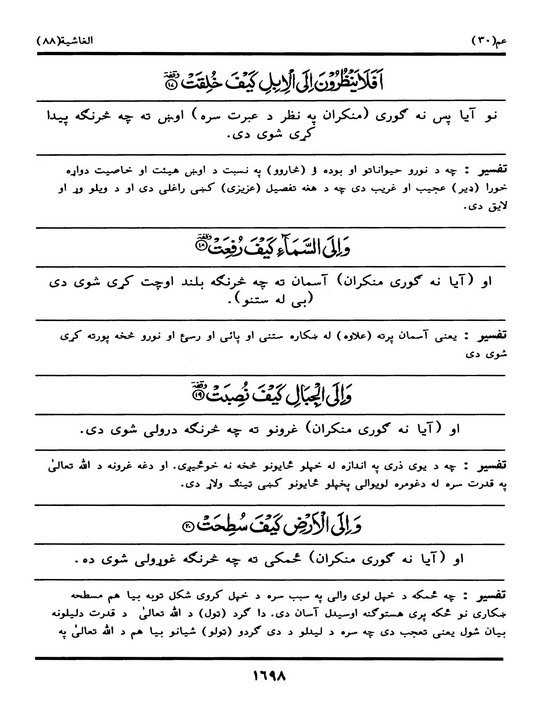 عم(۳۰) الغاشية(۸۸)
اَفَلَا يَنْظُرُوْنَ اِلَى الْاِبِلِ كَيْفَ خُلِقَتْ ۝۱۷
نو آيا پس نه گوری (منکران په نظر د عبرت سره) اوښ ته چه څرنگه پيدا
کړی شوی دی.
تفسير : چه د نورو حيواناتو او بوده ؤ (څاروو) په نسبت د اوښ هيئت او خاصيت دواړه
خورا (ډير) عجيب او غريب دی چه د هغه تفصيل (عزيزی) کښی راغلی دی او د ويلو وړ او
لايق دی.
وَاِلَى السَّمَآءِ كَيْفَ رُفِعَتْ ۝۱۸
او (آيا نه گوری منکران) آسمان ته چه څرنگه بلند اوچت کړی شوی دی
(بی له ستنو).
تفسير : يعنی آسمان پرته (علاوه) له ښکاره ستنی او پائی او رسئ او نورو څخه پورته کړی
شوی دی
وَاِلَى الْجِبَالِ كَيْفَ نُصِبَتْ ۝۱۹
او (آيا نه گوری منکران) غرونو ته چه څرنگه درولی شوی دی.
تفسير : چه د يوی ذری په اندازه له خپلو ځايونو څخه نه خوځيږی. او دغه غرونه د الله تعالیٰ
په قدرت سره له دغومره لويوالی پخپلو ځايونو کښی تينگ ولاړ دی.
وَاِلَى الْاَرْضِ كَيْفَ سُطِحَتْ ۝۲۰
او (آيا نه گوری منکران) ځمکی ته چه څرنگه غوړولی شوی ده.
تفسير : چه ځمکه د خپل لوی والی په سبب سره د خپل کروی شکل توبه بيا هم مسطحه
ښکاری نو ځکه پری هستوگنه اوسيدل آسان دی. دا گرد (تول) د الله تعالیٰ د قدرت دليلونه
بيان شول يعنی تعجب دی چه سره د ليدلو د دی گردو (تولو) شيانو بيا هم د الله تعالیٰ په
۱٦۹۸